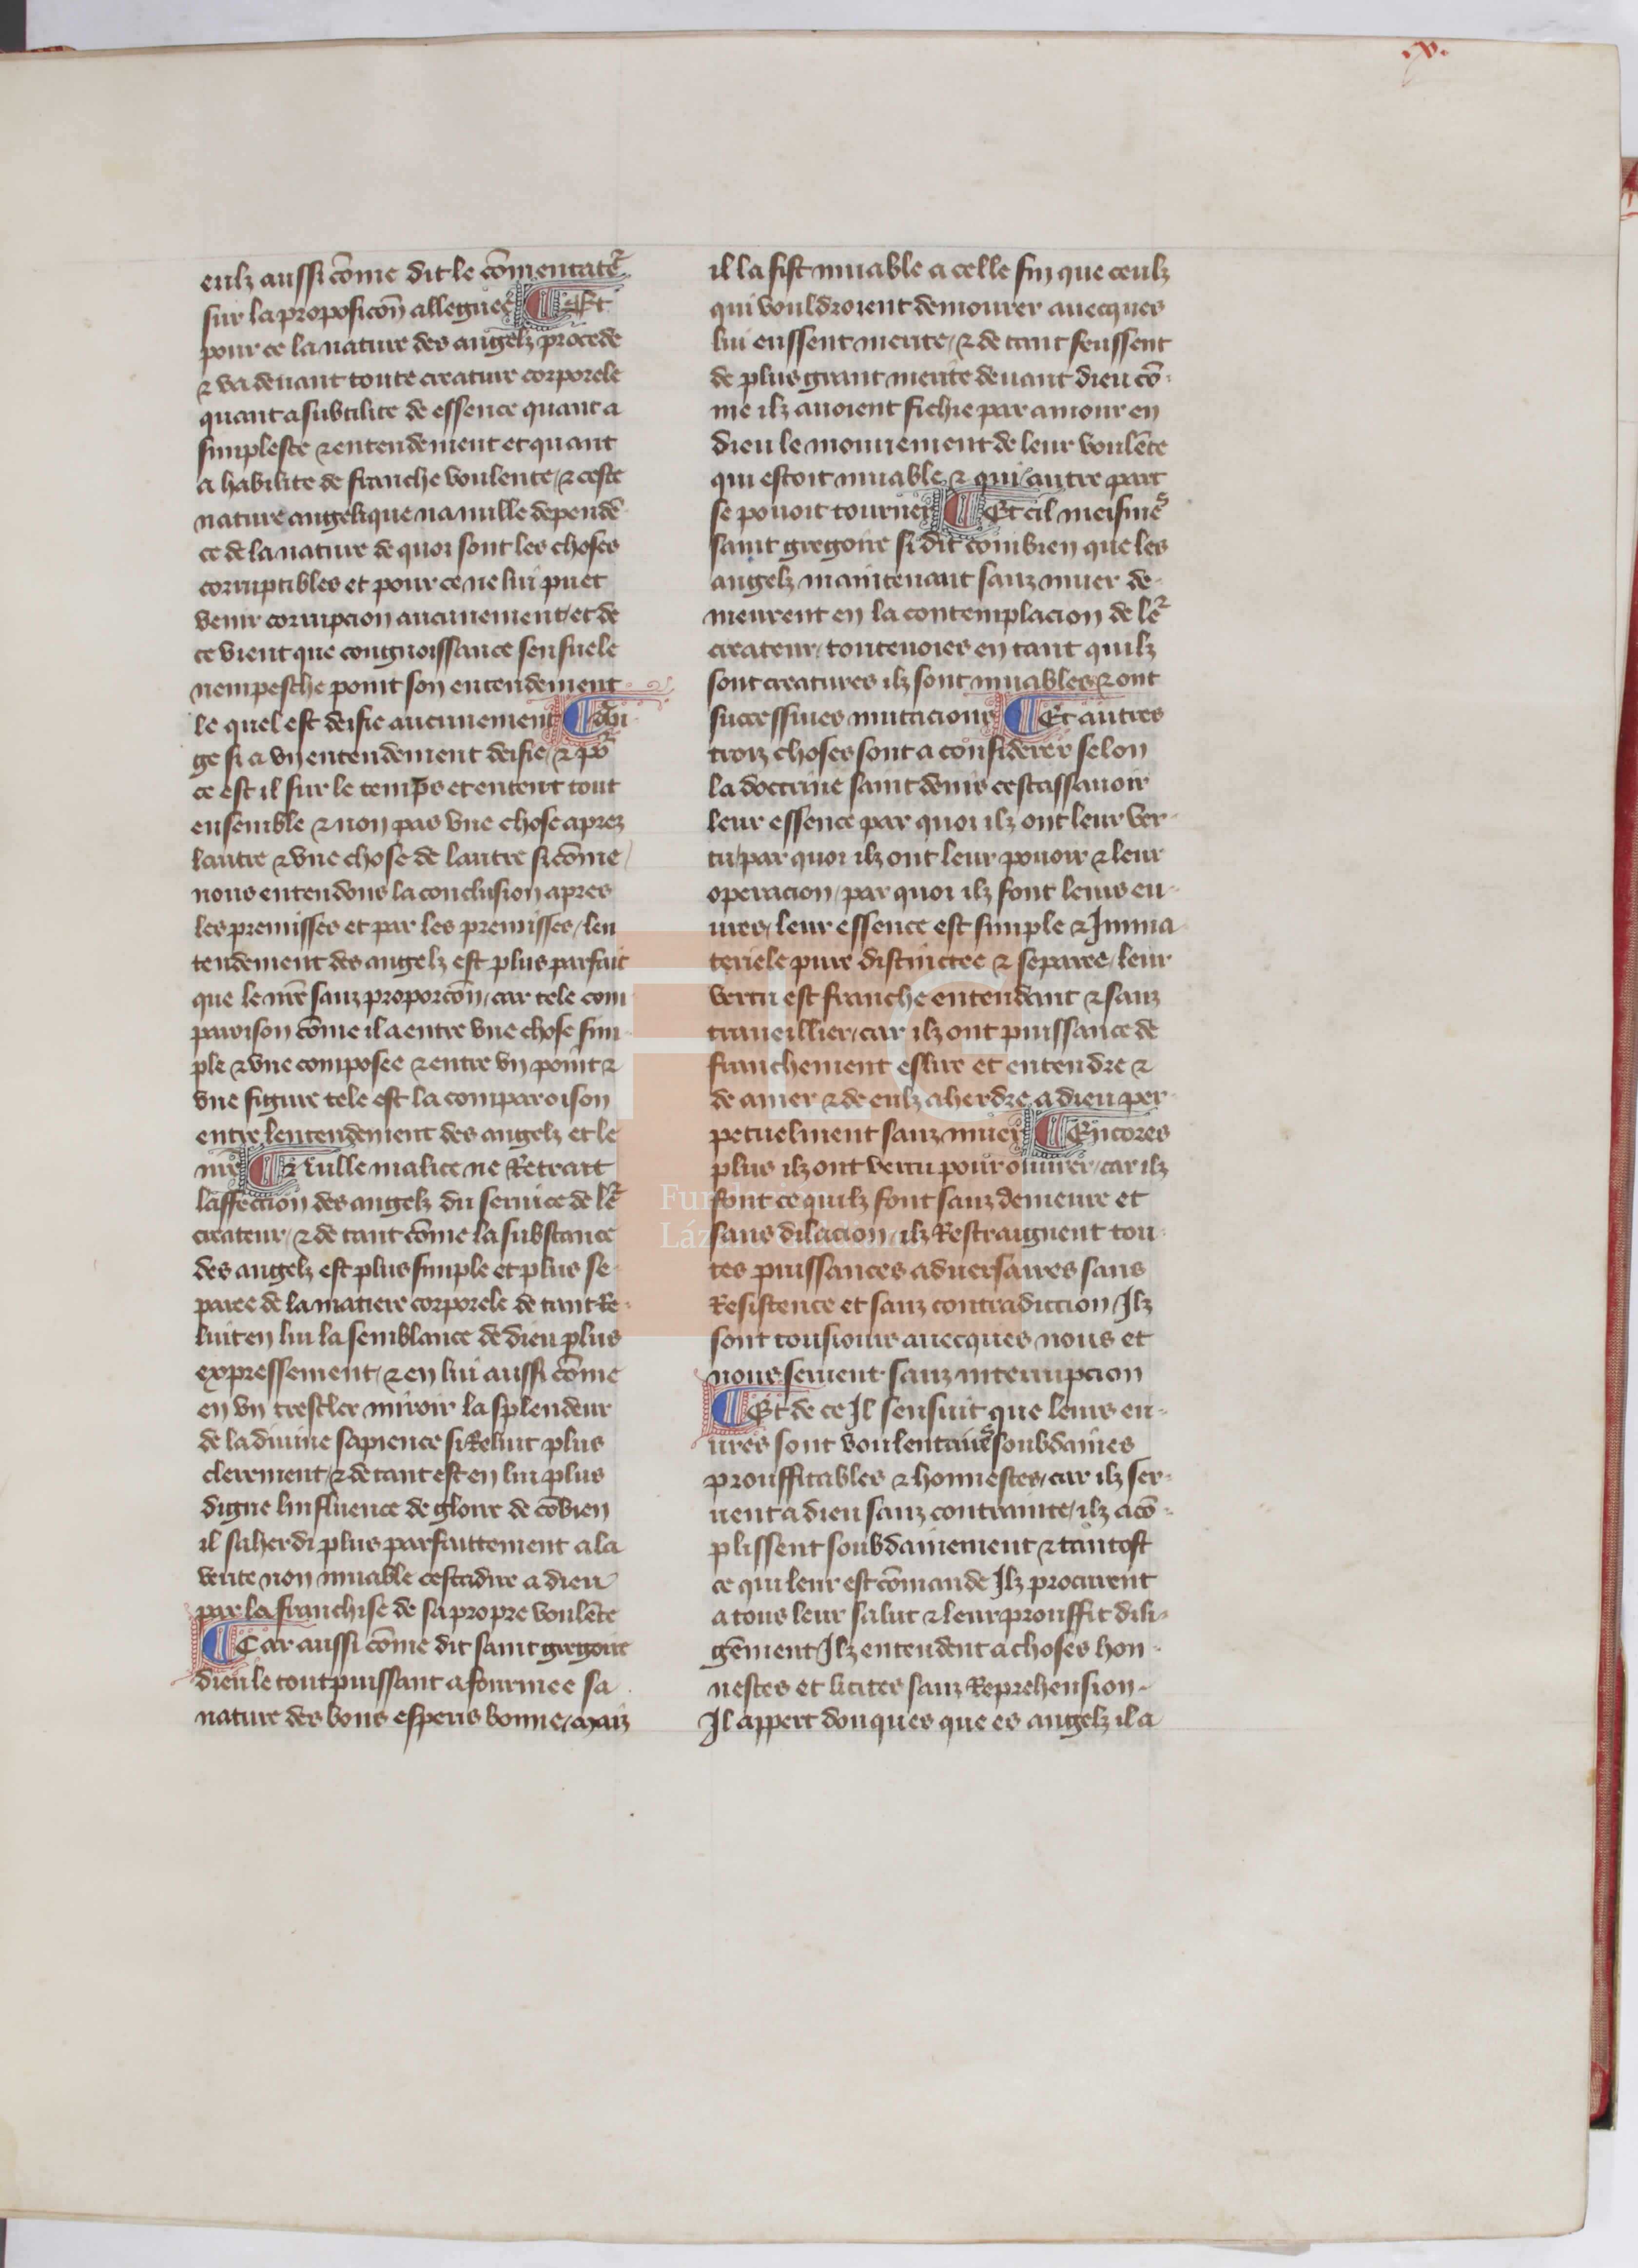 .xv.
eulz aussi cōme dit le cōmentate᷑
sur la proposicōn alleguee ¶ Et
pour ce la nature des angelz procede
⁊ va deuant toute creature corporele
quant a subtilite de essence quant a
simplesce ⁊ entendement et quant
a habilite de franche voulente / ⁊ ceste
nature angelique na nulle dependē
ce de la nature de quoi sont les choses
corruptibles et pour ce ne lui puet
venir corrupcion aucunement / et de
ce vient que congnoissance sensuele
nempesche point son entendement
le quel est deifie aucunement ¶
ge si a vn entendement deifie / ⁊ po᷑
ce est il sur le temps et entent tout
ensemble ⁊ non pas vne chose aprez
lautre ⁊ vne chose de lautre si cōme /
nous entendons la conclusion apres
les premisses et par les premisses / len
tendement des angelz est plus parfait
que le nr̄e sanz proporcōn / car tele com
paroison cōme il a entre vne chose sim
ple ⁊ vne composee ⁊ entre vn point ⁊
vne figure tele est la comparoison
entre lentendement des angelz et le
nr̄e ¶ Nulle malice ne Retrait
laffeccion des angelz du seruice de le᷑
createur / ⁊ de tant cōme la substance
des angelz est plus simple et plus se
paree de la matiere corporele de tant Re-
luit en lui la semblance de dieu plus
expressement / ⁊ en lui aussi cōme
en vn trescler miroir la splendeur
de la diuine sapience si Reluit plus
clerement / ⁊ de tant est en lui plus
digne linfluence de gloire de cōbien
il saherdi plus parfaittement a la
verite non muable cestadire a dieu
par la franchise de sa propre voulēte
¶ Car aussi cōme dit saint gregoire
dieu le tout puissant a fourmee sa
nature des bons esperis bonne / maiz
il la fist muable a celle fin que ceulz
qui vouldroient demourer auecques
lui eussent merite / ⁊ de tant feussent
de plus grant merite deuant dieu cō-
me ilz auoient fichie par amour en
dieu le mouuement de leur voulēte
qui estoit muable ⁊ qui autre part
se pouoit tourner ¶ Et cil meisme᷒
saint gregoire si dit combien que les
angelz maintenant sanz muer de-
meurent en la contemplacion de le᷑
createur / toutenoies en tant quilz
sont creatures ilz sont muables ⁊ ont
successiues mutacions ¶ Et autres
troiz choses sont a considerer selon
la doctrine saint denis cestassauoir
leur essence par quoi ilz ont leur ver-
tu / par quoi ilz ont leur pouoir ⁊ leur
operacion / par quoi ilz font leurs eu-
ures / leur essence est simple ⁊ Imma
teriele pure distinctee ⁊ separee / leur
vertu est franche entendant ⁊ sanz
traueillier / car ilz ont puissance de
franchement eslire et entendre ⁊
de amer ⁊ de eulz aherdre a dieu per-
petuelment sanz muer ¶ Encores
plus ilz ont vertu pour ouurer / car ilz
font ce quilz font sanz demeure et
sans dilacion / ilz Restraignent tou-
tes puissances aduersaires sans
Resistence et sanz contradiccion / Ilz
sont tousiours auecques nous et
nous seruent sanz interrupcion
¶ Et de ce Il sensuit que leurs eu-
ures sont voulentaire᷒ soubdaines
prouffitables ⁊ honnestes / car ilz ser-
uent a dieu sanz contrainte / ilz acō-
plissent soubdainement ⁊ tantost
ce qui leur est cōmande Ilz procurent
a tous leur salut ⁊ leur prouffit dili-
gēment Ilz entendent a choses hon-
nestes et licites sanz Reprehension-
Il appert donques que es angelz il a